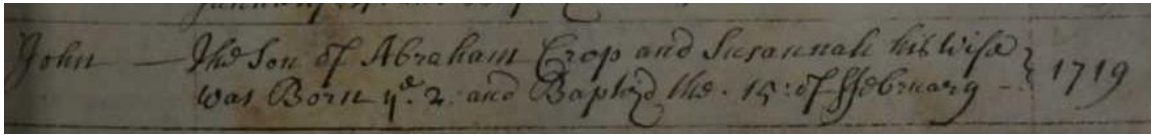 John — The Son of Abraham Crop and Susannah his Wife
was Born ye. 2. and Baptizd the. 15: of ffebruary — 1719